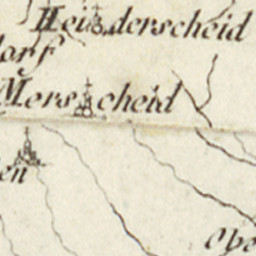 Heinderscheid
dorf
Merscheid
en
Obe